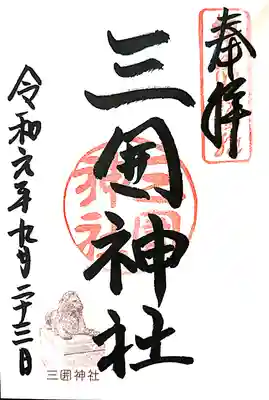 奉拝
三囲神社
令和元年九月二十三日
三囲神社